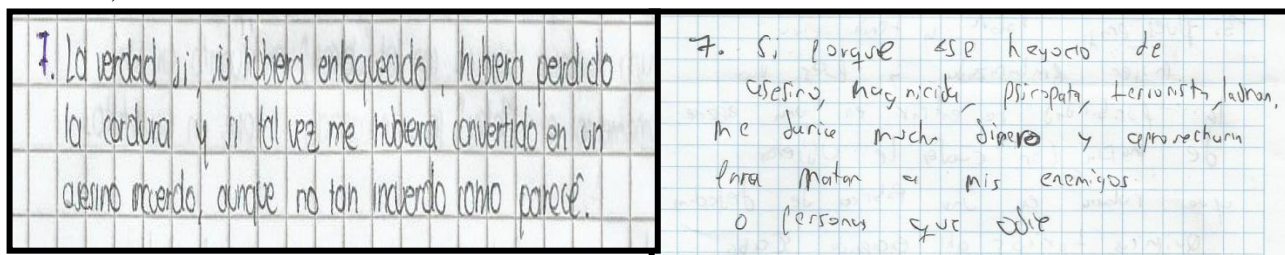 7. La verdad si, yo hubiera enloquecido, hubiera perdido
la cordura y si tal vez me hubiera convertido en un
asesino incuerdo, aunque no tan incuerdo como parece.
7. Si porque ese de
asesino, psicopata, terrorista, ladron,
me mucho dinero y
para matar a mis enemigos
o personas que odie